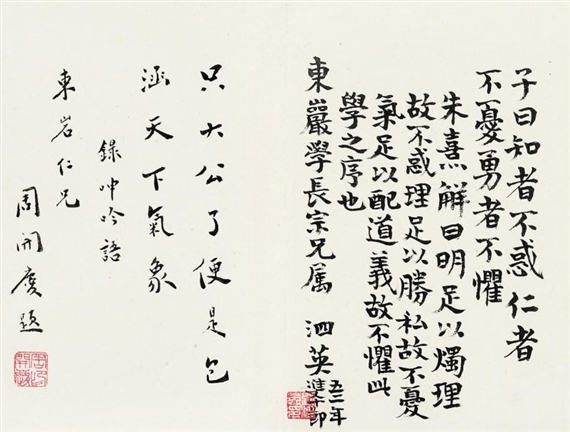 子曰知者不惑仁者
不憂勇者不懼
朱熹解曰明足以燭理
故不惑理足以勝私故不憂
氣足以配道義故不懼此
學之序也
東嚴學長宗兄属
泗英
五二年
雙十節
只大公了便是包
涵天下氣象
錄呻吟語
東岩仁兄
周開慶題